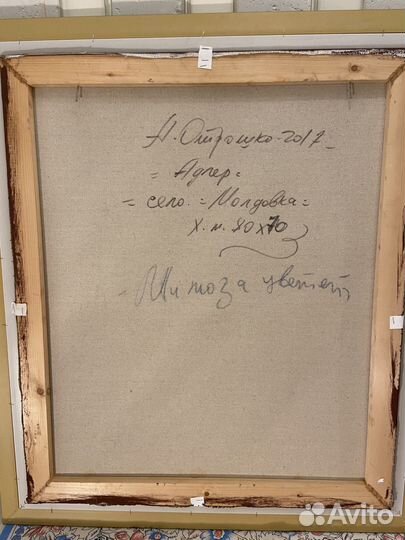 А. Отрошко-2017
= Адлер=
= село. = Молдовка=
х.м. 80х70
- Мимоза цветет
Avito